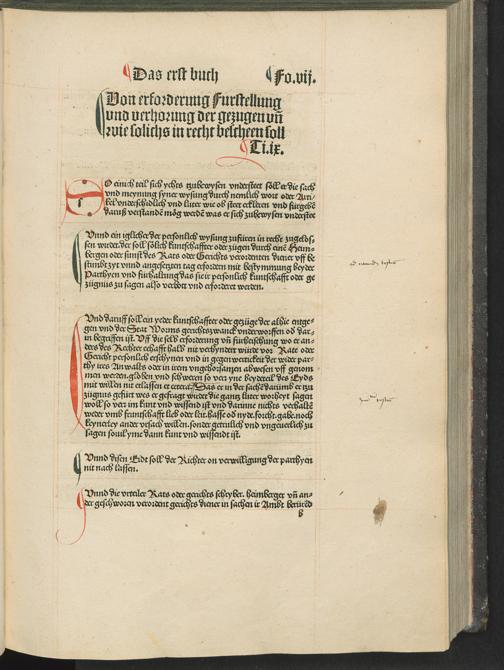 Das erst buch Fo.vij.
Von erforderung Furstellung
vnd verhorung der gezugen vñ
wie solichs in recht bescheen soll
Ti.ix.
SO einich teil sich ychts zubewysen vnderstet soll er die sach
vnd meynung syner wysung durch nemlich wort oder Arti-
kel vnderschidlich vnd luter wie ob stet erkleren vnd furgebē
daruß verstandē mög werdē was er sich zubewysen vnderstet
Vnnd ein iglicher der personlich wysung zufüren in recht zugelas-
sen wurdet. der soll sölich kuntschaffter oder zügen durch einē Heim-
bergen oder sunst des Rats oder Gerichts verordenten diener vff be
stimbt zyt vnnd angesetzten tag erfordern mit bestymmung beyder
Parthyen vnd furhaltung das sie ir personlich kuntschafft oder ge
zügnüs zu sagen also verbott vnd erfordert werden.
Vnd daruff soll ein yeder kuntschaffter oder gezüge der alhie entge-
gen vnd der Stat Worms gerichtszwanck vnderworffen od dar-
in begriffen ist. Vff die selb erforderung vñ fürheischung wo er an-
ders des Rechten ehafft halb nit verhyndert würde vor Rats oder
Gericht personlich erschynen vnd in gegenwertickeit der wider par-
thy irs Anwalts oder in iren vngehorsamen abwesen vff genom
men werden. globen vnd schweren so verr yne beyderteil des Eyds
mit willen nit erlassen et cetera. Das er in der sach darumb er tzu
tzugnus gefürt wes er gefragt würdet die gantz luter worheyt sagen
woll so verr im kunt vnd wissend ist vnd darinne nichts verhalten
weder vmb fruntschafft lieb oder leit. hasse od nyde. forcht. gabe. noch
keynerley ander vrsach willen. sonder getrulich vnd vngeuerlich zu
sagen souil yme dann kunt vnd wissendt ist.
Vnnd disen Eidt soll der Richter on verwilligung der parthyen
nit nach lassen.
Vnnd die vrteiler Rats oder gerichts schryber. heimberger vñ an-
der geschworen verordent gerichts diener in sachen ir Ambt berürēd
B